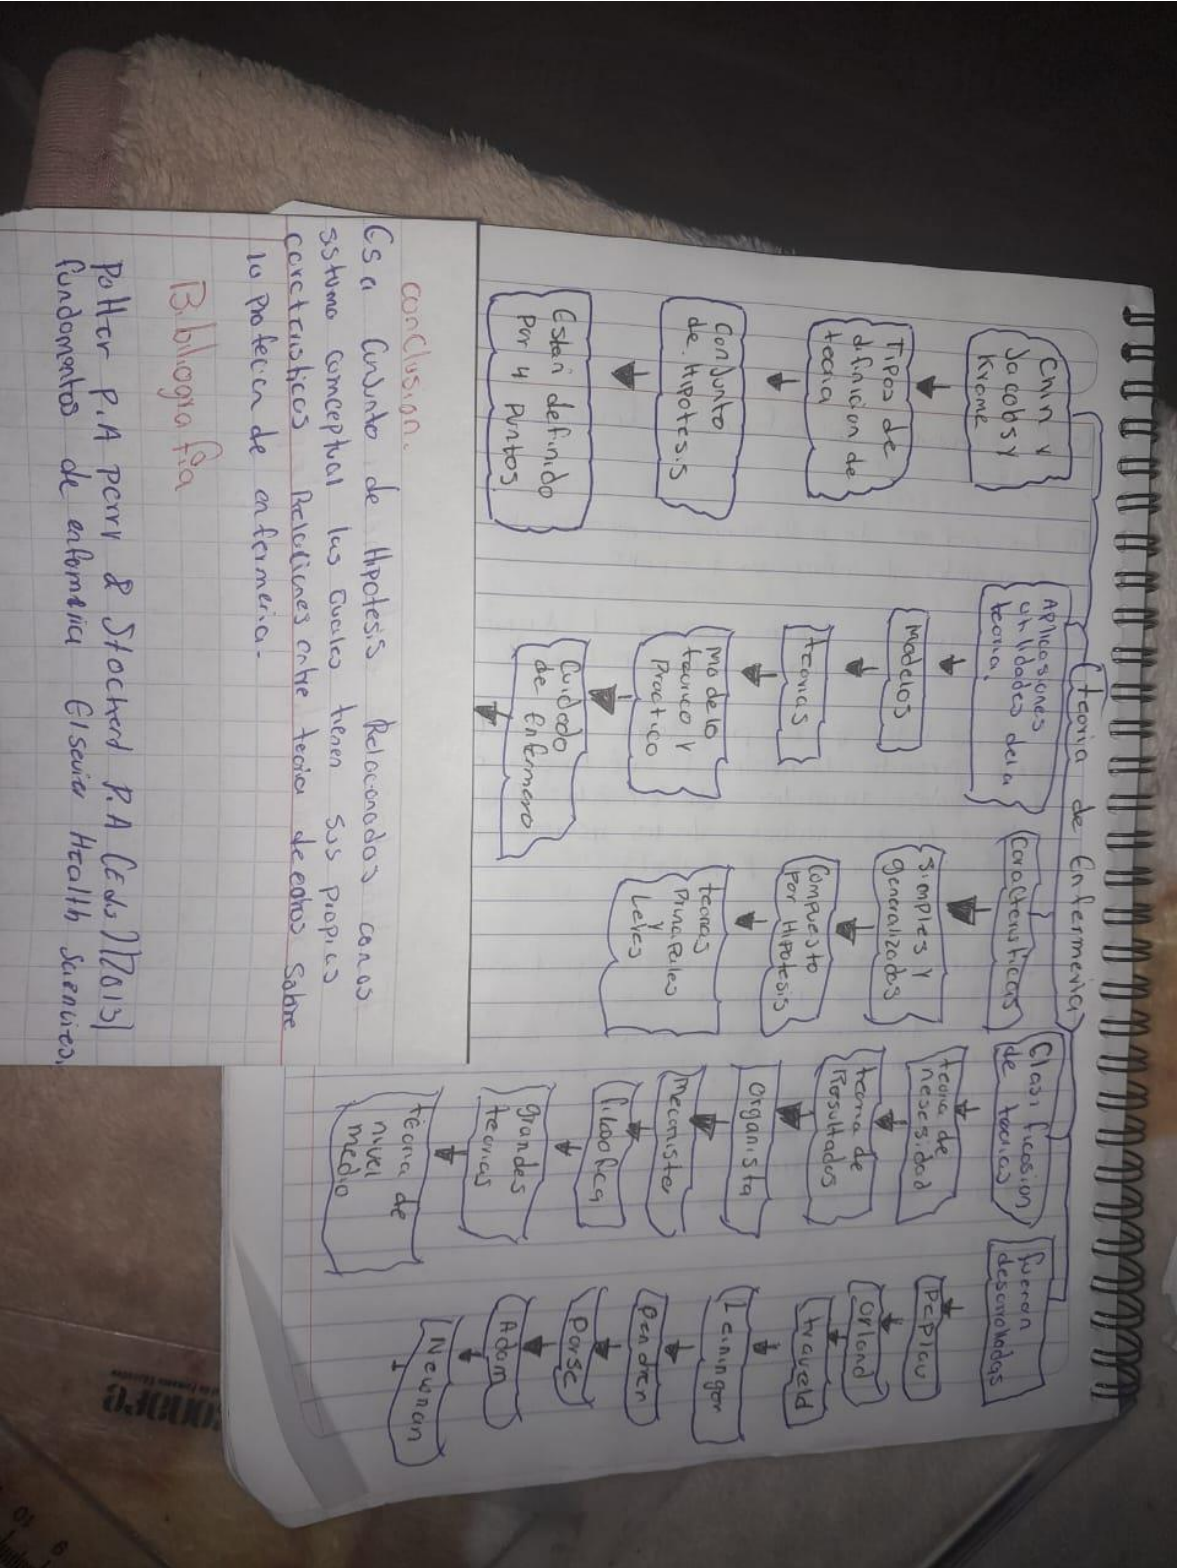 Teoria de Enfermeria
Chin y
Jacobsy
Krone
Tipos de
difinicion de
teoria
Conjunto
de Hipotesis
Estan definido
Por 4 Puntos
Apliassiones
y utilidades dela
teoria.
Modelos
teorias
modelo
teorico y
Practico
Cuidado
de Enfermero
Caracteristicas
Simples y
generalizados
Compuesto
por Hipotesis
teorias
Principales
y
Leyes
Clasificasion
de teorias
teoria de
nesesidad
teoria de
Resultados
organista
mecanista
filosofica
grandes
teorias
teoria de
nivel
medio
fueron
desarrolladas
Peplau
Orland
traveld
Leninger
Penden
Parse
Adam
Newman
conclusion.
Es a Cunjunto de Hipotesis Relacionados con as
sstema comceptual las cuales tienen sus propias
caracteristicas Relaciones entre teoria de estos Sobre
la profecion de enfermeria.
Bibliografia
Potter P.A perry & Stocherd P.A (eds) (2013)
fundamentos de enfermeria Elsevier Health Sciencires,